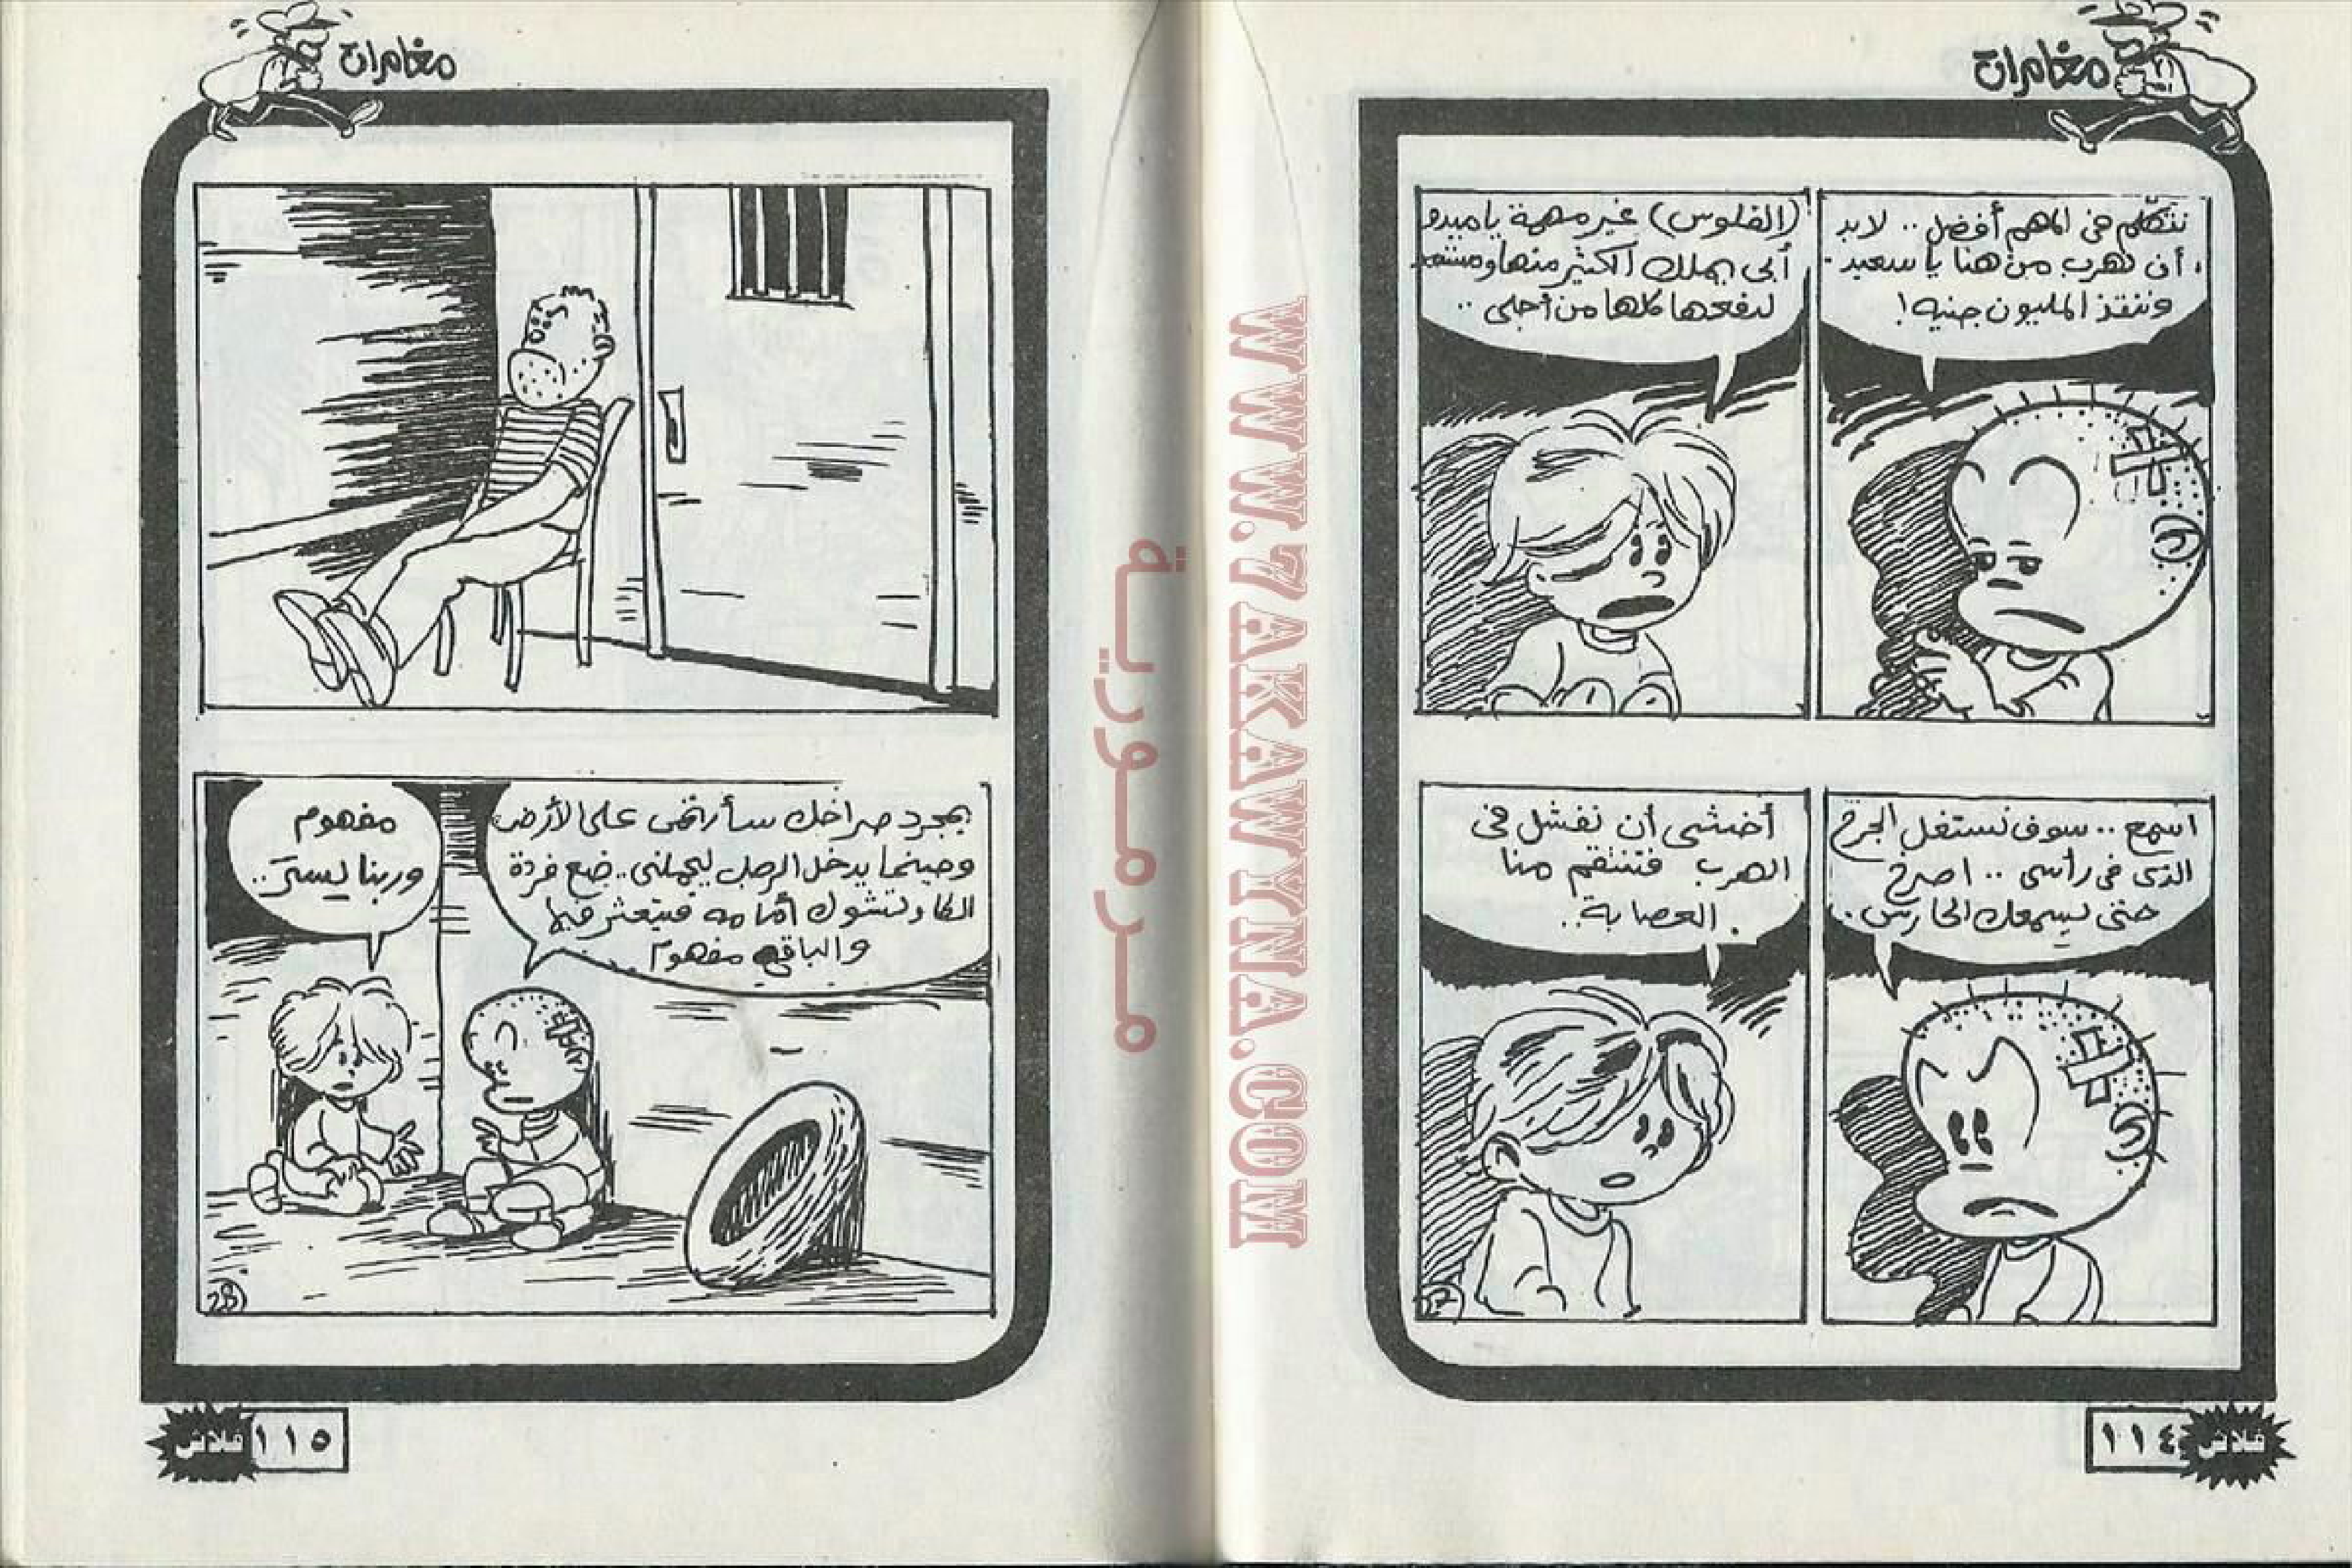 مغامرات
نتكلم فى المهم أفضل .. لابد
أن نهرب من هنا يا سعيد .
وننقذ المليون جنيه !
(الفلوس) غير مهمة يا ميدو
أبى يملك الكثير منها ومستعد
لدفعها كلها من أجلى ..
اسمع .. سوف نستغل الجرح
الذى فى رأسى .. اصرخ
حتى يسمعك الحارس .
أخشى أن نفشل فى
الهرب فتنتقم منا
العصابة ..
١١٤
فلاش
WWW.7AKAWYNA.COM
مرمورية
مغامرات
بمجرد صراخك سأرتمى على الأرض
وحينما يدخل الرجل ليحملنى .. ضع فردة
الكاوتشوك أمامه فيتعثر فيها
والباقى مفهوم ..
مفهوم
وربنا يستر ..
28
١١٥
فلاش